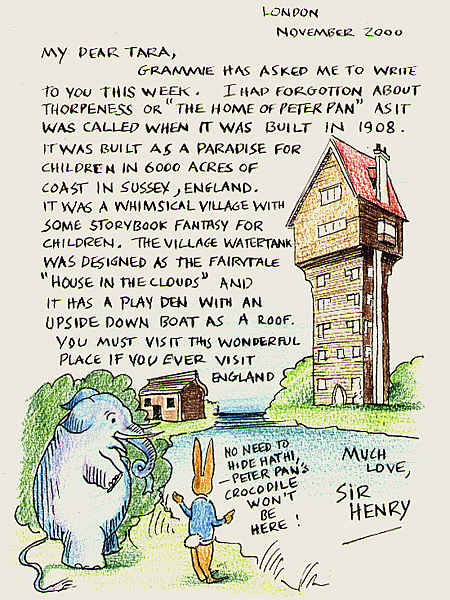 LONDON
NOVEMBER 2000
MY DEAR TARA,
GRAMMIE HAS ASKED ME TO WRITE
TO YOU THIS WEEK. I HAD FORGOTTION ABOUT
THORPENESS OR "THE HOME OF PETER PAN" AS IT
WAS CALLED WHEN IT WAS BUILT IN 1908.
IT WAS BUILT AS A PARADISE FOR
CHILDREN IN 6000 ACRES OF
COAST IN SUSSEX, ENGLAND.
IT WAS A WHIMSICAL VILLAGE WITH
SOME STORYBOOK FANTASY FOR
CHILDREN. THE VILLAGE WATERTANK
WAS DESIGNED AS THE FAIRYTALE
"HOUSE IN THE CLOUDS" AND
IT HAS A PLAY DEN WITH AN
UPSIDE DOWN BOAT AS A ROOF.
YOU MUST VISIT THIS WONDERFUL
PLACE IF YOU EVER VISIT
ENGLAND
NO NEED TO
HIDE HATHI,
—PETER PAN'S
CROCODILE
WON'T
BE
HERE!
MUCH
LOVE,
SIR
HENRY